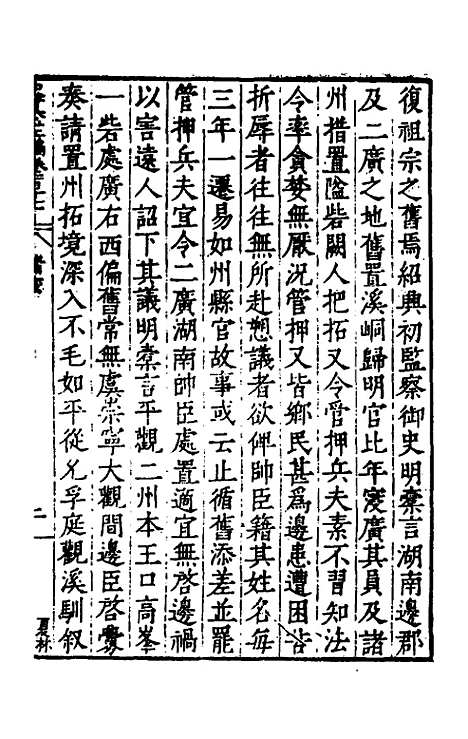 復祖宗之舊焉紹興初監察御史明橐言湖南邊郡
及二廣之地舊置溪峒歸明官比年寖廣其員及諸
州措置隘砦闕人把拓又令管押兵夫素不習知法
令率貪婪無厭況管押又皆鄉民甚爲邊患遭困呰
折辱者往往無所赴愬議者欲俾帥臣籍其姓名每
三年一遷易如州縣官故事或云止循舊添差並罷
管押兵夫宜令二廣湖南帥臣處置適宜無啓邊禍
以害遠人詔下其議明橐言平觀二州本王口高峯
一砦處廣右西偏舊常無虞崇寧大觀間邊臣啓釁
奏請置州拓境深入不毛如平從允孚庭觀溪馴叙